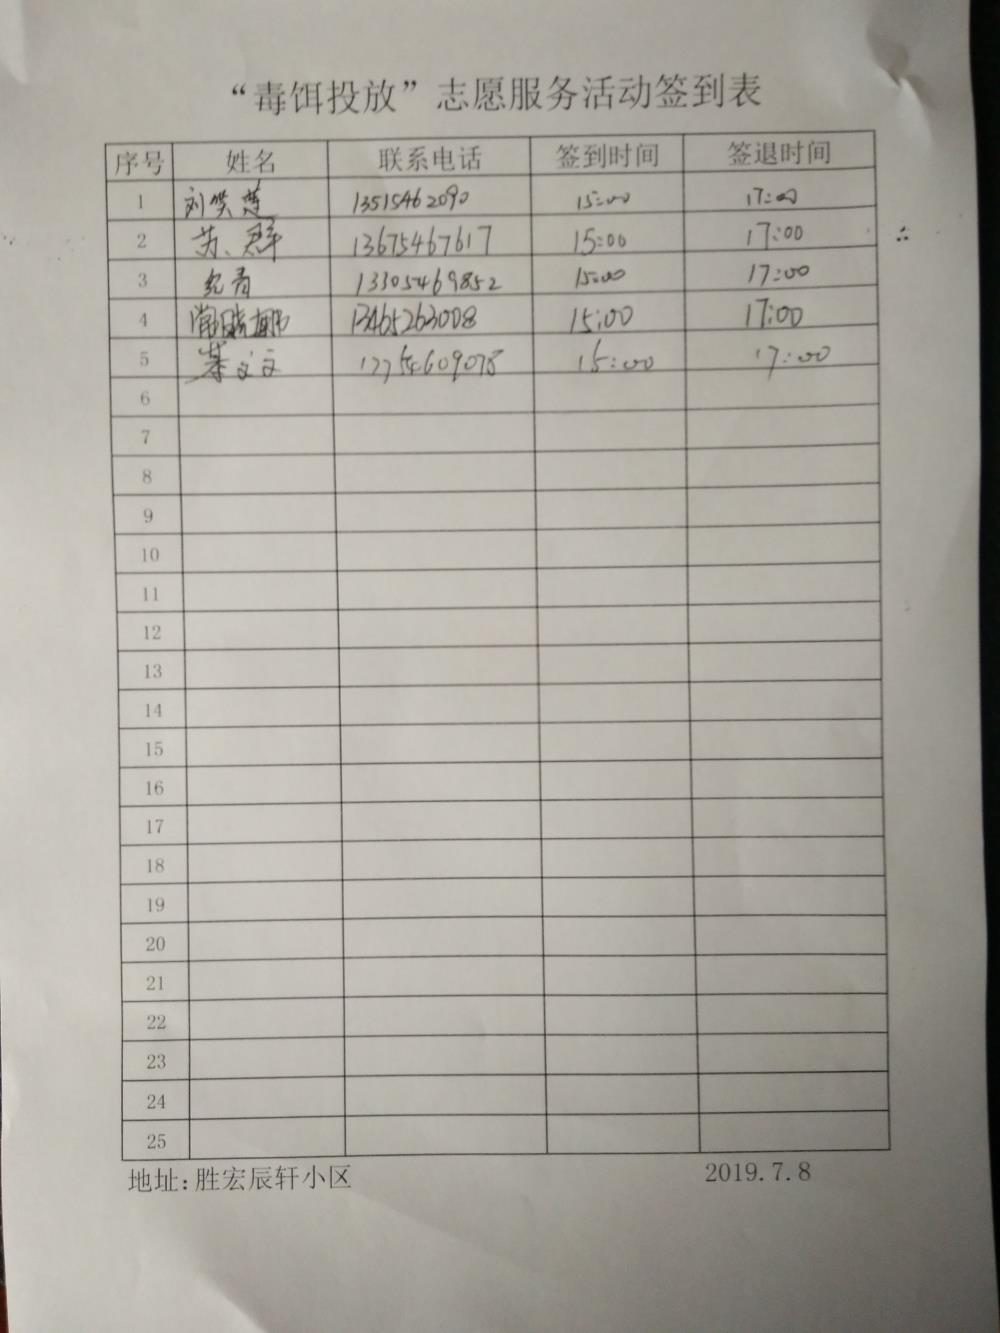 “毒饵投放”志愿服务活动签到表
序号 姓名 联系电话 签到时间 签退时间
1 刘笑莲 13515462090 15:00 17:00
2 苏群 13675467617 15:00 17:00
3 纪青 13305469852 15:00 17:00
4 13465263008 15:00 17:00
5 綦文文 15:00 17:00
6
7
8
9
10
11
12
13
14
15
16
17
18
19
20
21
22
23
24
25
地址:胜宏辰轩小区 2019.7.8